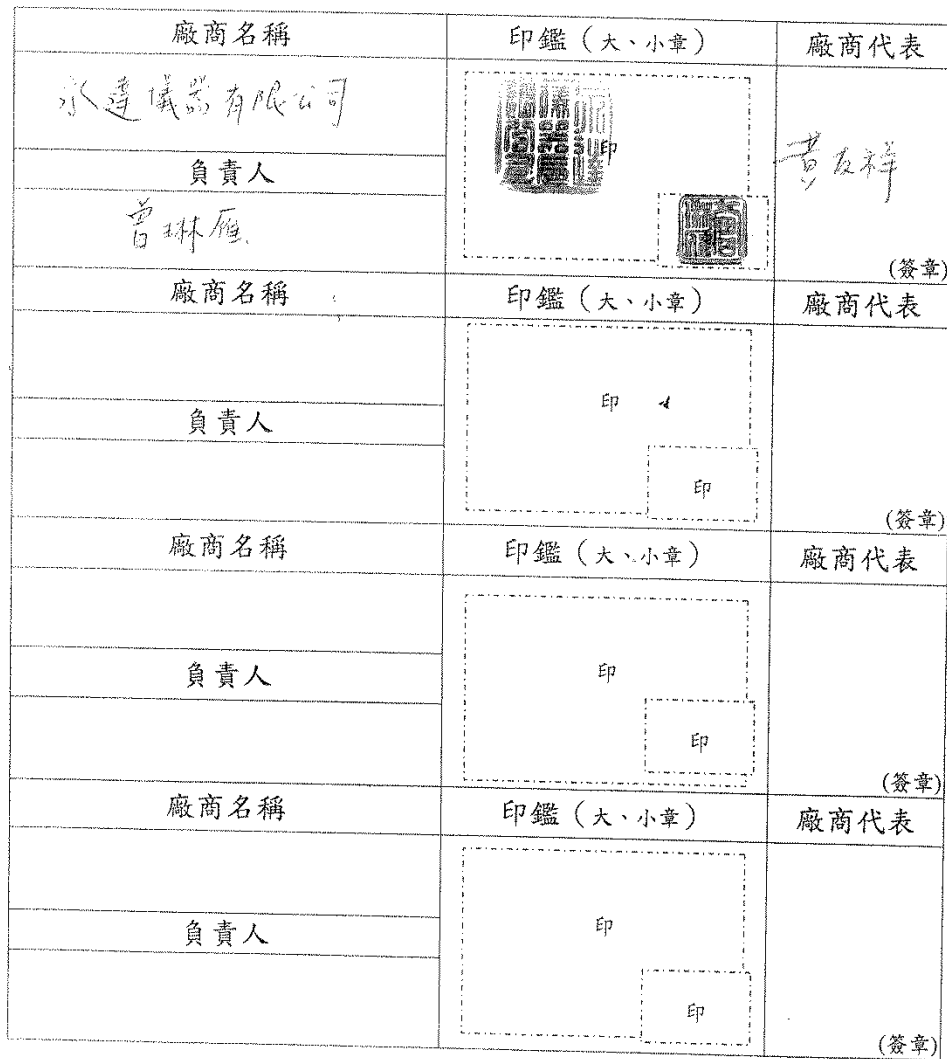 廠商名稱 印鑑（大、小章） 廠商代表
永達儀器有限公司
印
黃友祥
負責人
曾琳雁
(簽章)
廠商名稱 印鑑（大、小章） 廠商代表
印
負責人
印
(簽章)
廠商名稱 印鑑（大、小章） 廠商代表
印
負責人
印
(簽章)
廠商名稱 印鑑（大、小章） 廠商代表
印
負責人
印
(簽章)